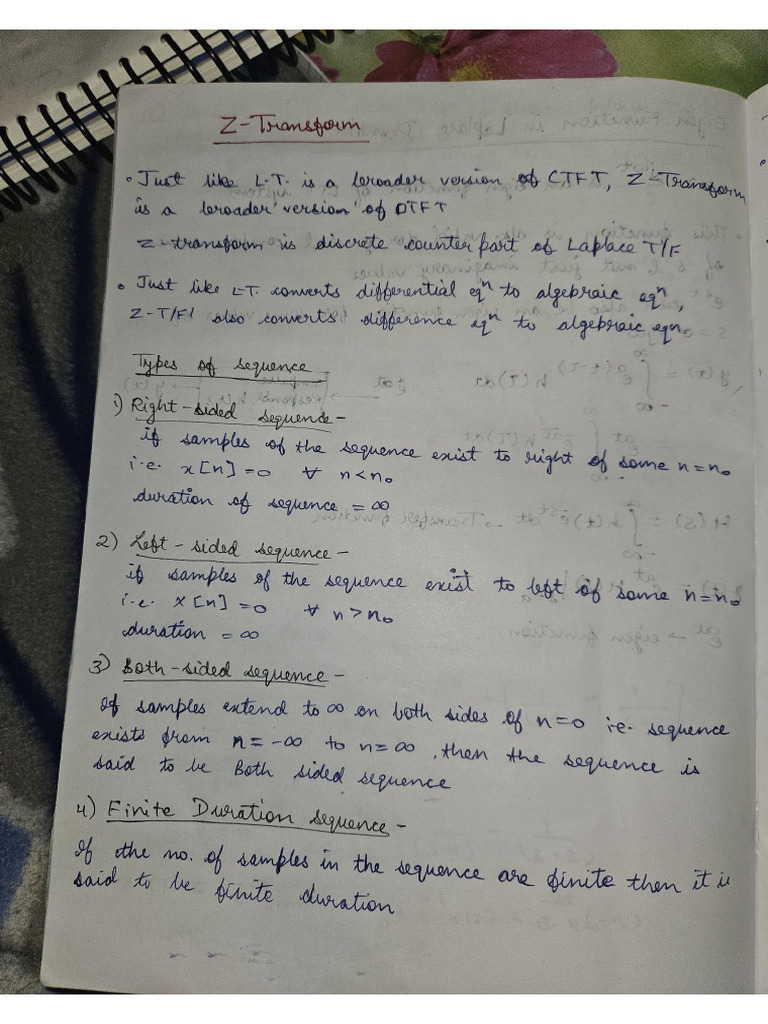 Z-Transform
• Just like L.T. is a broader version of CTFT, Z-Transform
is a broader version of DTFT
Z-transform is discrete counter part of Laplace T/F
• Just like LT. converts differential eqⁿ to algebraic eqⁿ,
Z-T/F also converts difference eqⁿ to algebraic eqn.
Types of sequence
1) Right-sided sequence-
if samples of the sequence exist to right of some n=n₀
i.e. x[n]=0 ∀ n<n₀
duration of sequence = ∞
2) Left-sided sequence-
if samples of the sequence exist to left of some n=n₀
i.e. x[n]=0 ∀ n>n₀
duration = ∞
3) Both-sided sequence-
If samples extend to ∞ on both sides of n=0 i.e. sequence
exists from n=-∞ to n=∞, then the sequence is
said to be Both sided sequence
4) Finite Duration sequence-
If the no. of samples in the sequence are finite then it is
said to be finite duration